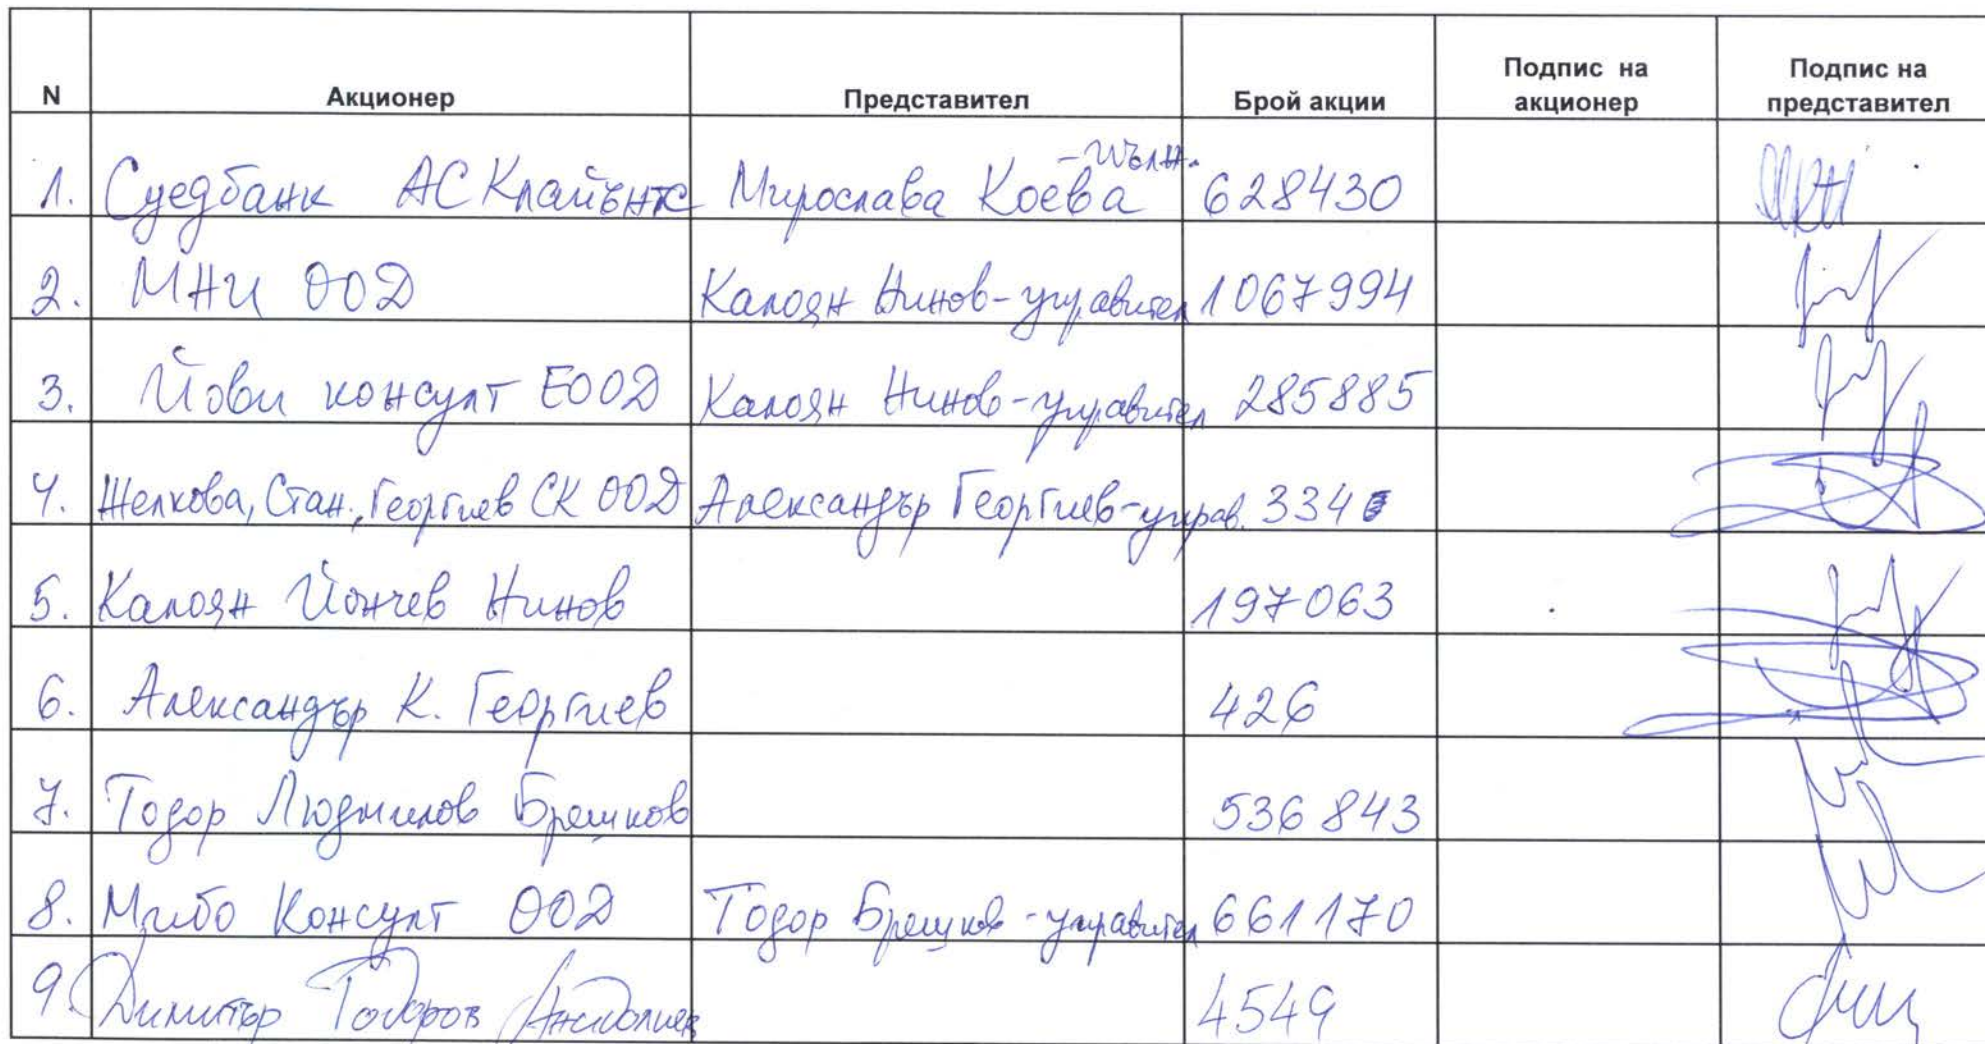 N Акционер Представител Брой акции Подпис на акционер Подпис на представител
1. Суедбанк АС Клайънтс Мирослава Коева -пълн. 628430
2. МНИ ООД Калоян Нинов-управител 1067994
3. Йови консулт ЕООД Калоян Нинов-управител 285885
4. Желкова, Стан., Георгиев СК ООД Александър Георгиев-управ. 334
5. Калоян Йончев Нинов 197063
6. Александър К. Георгиев 426
7. Тодор Людмилов Брешков 536843
8. Мибо Консулт ООД Тодор Брешков - управител 661170
9. Димитър Тодоров 4549